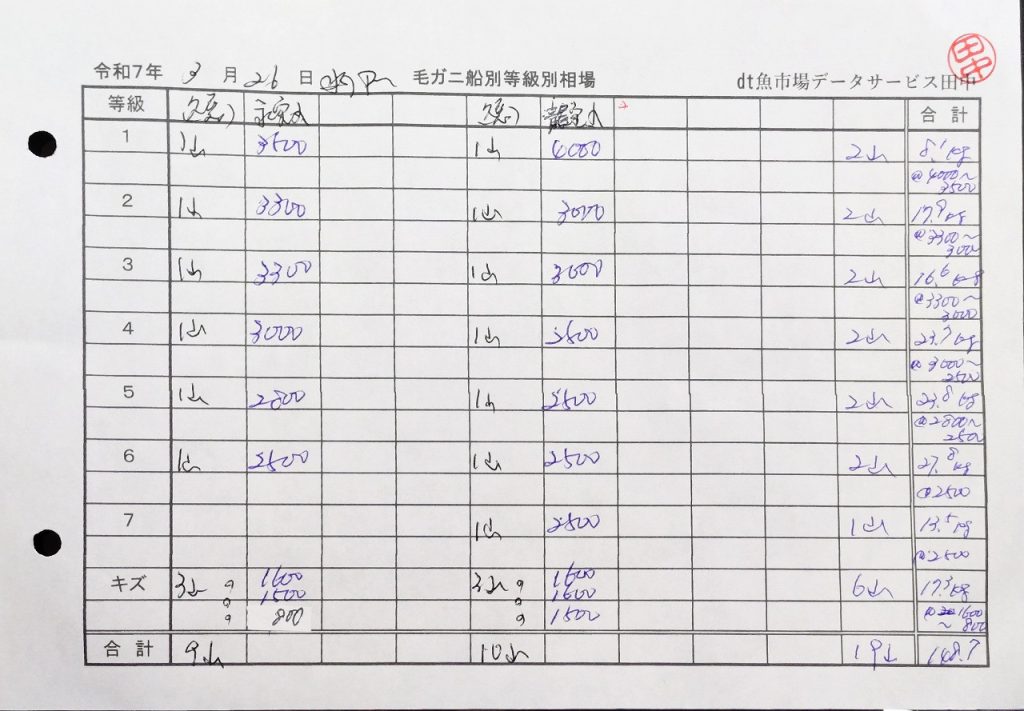 令和7年 3月26日 毛ガニ船別等級別相場 dt魚市場データサービス田中
田中
等級 合計
1 1山 3500 1山 4000 2山 8.1kg
@4000〜
3500
2 1山 3300 1山 3000 2山 17.9kg
@3300〜
3000
3 1山 3300 1山 3000 2山 16.6kg
@3300〜
3000
4 1山 3000 1山 2500 2山 23.7kg
@3000〜
2500
5 1山 2800 1山 2500 2山 23.8kg
@2800〜
2500
6 1山 2500 1山 2500 2山 27.8kg
@2500
7 1山 2500 1山 13.5kg
@2500
キズ 3山 1600 3山 1600 6山 17.3kg
1500 1600
800 1500 1600
〜800
合計 9山 10山 19山 148.7